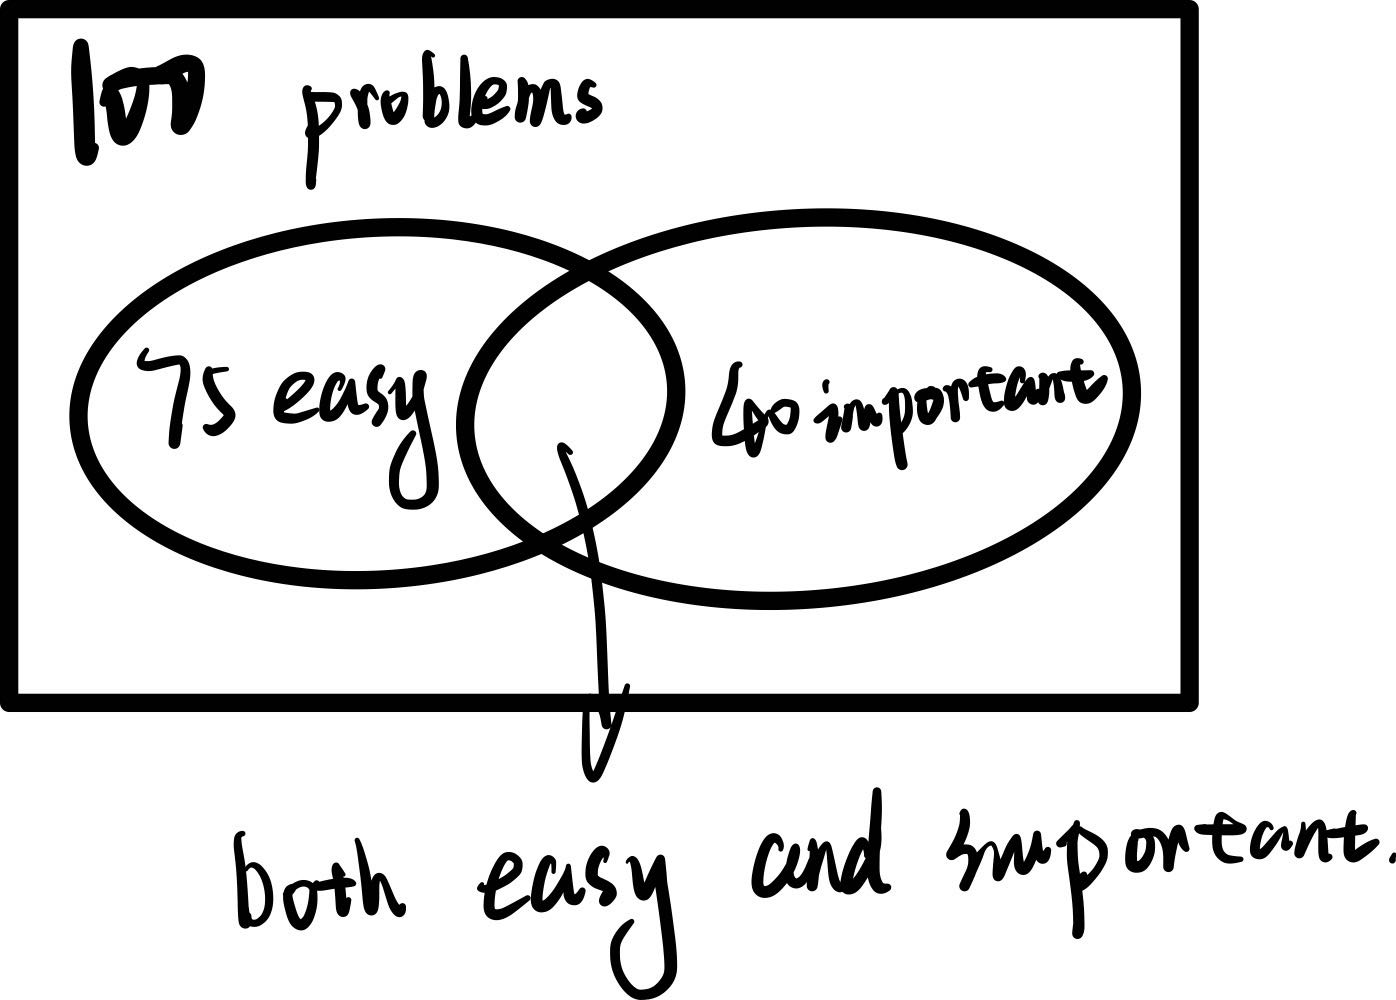 100 problems
75 easy
40 important
both easy and important.